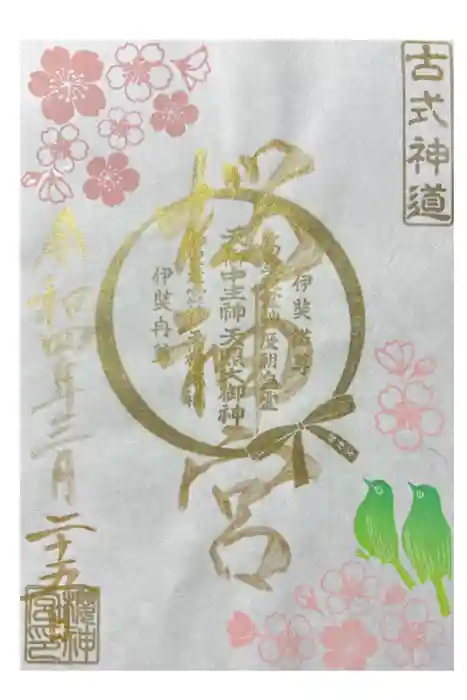 古式神道
桜神宮
伊奘諾尊
天御中主神 天照大御神
伊奘冉尊
令和四年三月二十五日
櫻神宮印